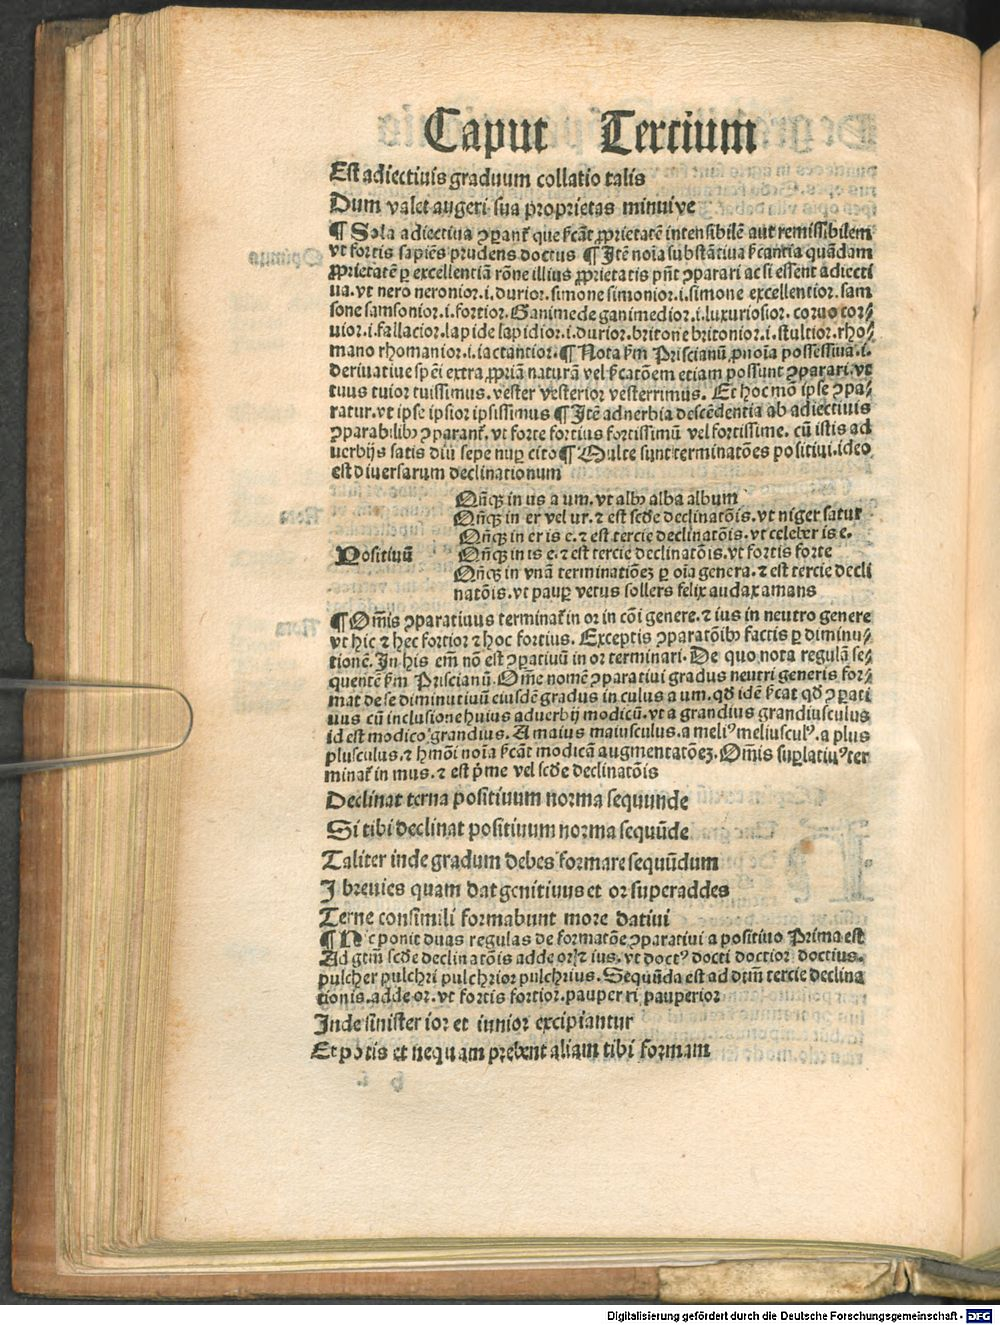 Caput Tercium
Est adiectiuis graduum collatio talis
Dum valet augeri sua proprietas minuive
¶ Sola adiectiua ꝯparant᷑ que ſ̄cāt ꝓprietatē intensibilē aut remissibilem
vt fortis sapiēs prudens doctus ¶ Itē noīa substātiua ſ̄cantia quādam
ꝓprietatē ꝑ excellentiā rōne illius ꝓprietatis pn̄t ꝯparari ac si essent adiecti
ua. vt nero neronior .i. durior. simone simonior .i. simone excellentior. sam
sone samsonior .i. fortior. Ganimede ganimedior .i. luxuriosior. coruo cor⸗
uior .i. fallacior. lapide lapidior .i. durior. britone britonior .i. stultior. rho⸗
mano rhomanior .i. iactantior. ¶ Nota ẜm Priscianū ꝓnoīa possessiua .i.
deriuatiue sp̄ei extra ꝓpriā naturā vel ſ̄catōem etiam possunt ꝯparari. vt
tuus tuior tuissimus. vester vesterior vesterrimus. Et hoc mō ipse ꝯpa⸗
ratur. vt ipse ipsior ipsissimus ¶ Itē aduerbia descēdentia ab adiectiuis
ꝯparabilibꝫ ꝯparant᷑. vt forte fortius fortissimū vel fortissime. cū istis ad
uerbijs satis diū sepe nuꝑ cito ¶ Multe sunt terminatōes positiui. ideo
est diuersarum declinationum
Qn̄qꝫ in us a um. vt albꝰ alba album
Qn̄qꝫ in er vel ur. ⁊ est scd̄e declinatōis. vt niger satur
Qn̄qꝫ in er is e. ⁊ est tercie declinatōis. vt celeber is e.
Positiuū Qn̄qꝫ in is e. ⁊ est tercie declinatōis. vt fortis forte
Qn̄qꝫ in vnā terminatiōeꝫ ꝑ oīa genera. ⁊ est tercie decli
natōis. vt pauꝑ vetus sollers felix audax amans
¶ Om̄is ꝯparatiuus terminat᷑ in or in cōi genere. ⁊ ius in neutro genere
vt hic ⁊ hec fortior ⁊ hoc fortius. Exceptis ꝯparatōibꝫ factis ꝑ diminu⸗
tionē. In his em̄ nō est ꝯpatiuū in or terminari. De quo nota regulā se⸗
quentē ẜm Priscianū. Om̄e nomē ꝯparatiui gradus neutri generis for⸗
mat de se diminutiuū eiusdē gradus in culus a um. qd̄ idē ſ̄cat qd̄ ꝯpati
uus cū inclusione huius aduerbij modicū. vt a grandius grandiusculus
id est modico grandius. A maius maiusculus. a meliꝰ meliusculꝰ. a plus
plusculus. ⁊ hmōi noīa ſ̄cāt modicā augmentatōeꝫ. Om̄is suꝑlatiuꝰ ter
minat᷑ in mus. ⁊ est p̄me vel scd̄e declinatōis
Declinat terna positiuum norma sequunde
Si tibi declinat positiuum norma sequūde
Taliter inde gradum debes formare sequūdum
I breuies quam dat genitiuus et or superaddes
Terne consimili formabunt more datiui
¶ Hic ponit duas regulas de formatōe ꝯparatiui a positiuo Prima est
Ad gtm̄ scd̄e declinatōis adde or ⁊ ius. vt doctꝰ docti doctior doctius.
pulcher pulchri pulchrior pulchrius. Sequūda est ad dtm̄ tercie declina
tionis. adde or. vt fortis fortior. pauper ri pauperior
Inde sinister ior et iunior excipiantur
Et potis et nequam prebent aliam tibi formam
Digitalisierung gefördert durch die Deutsche Forschungsgemeinschaft - DFG